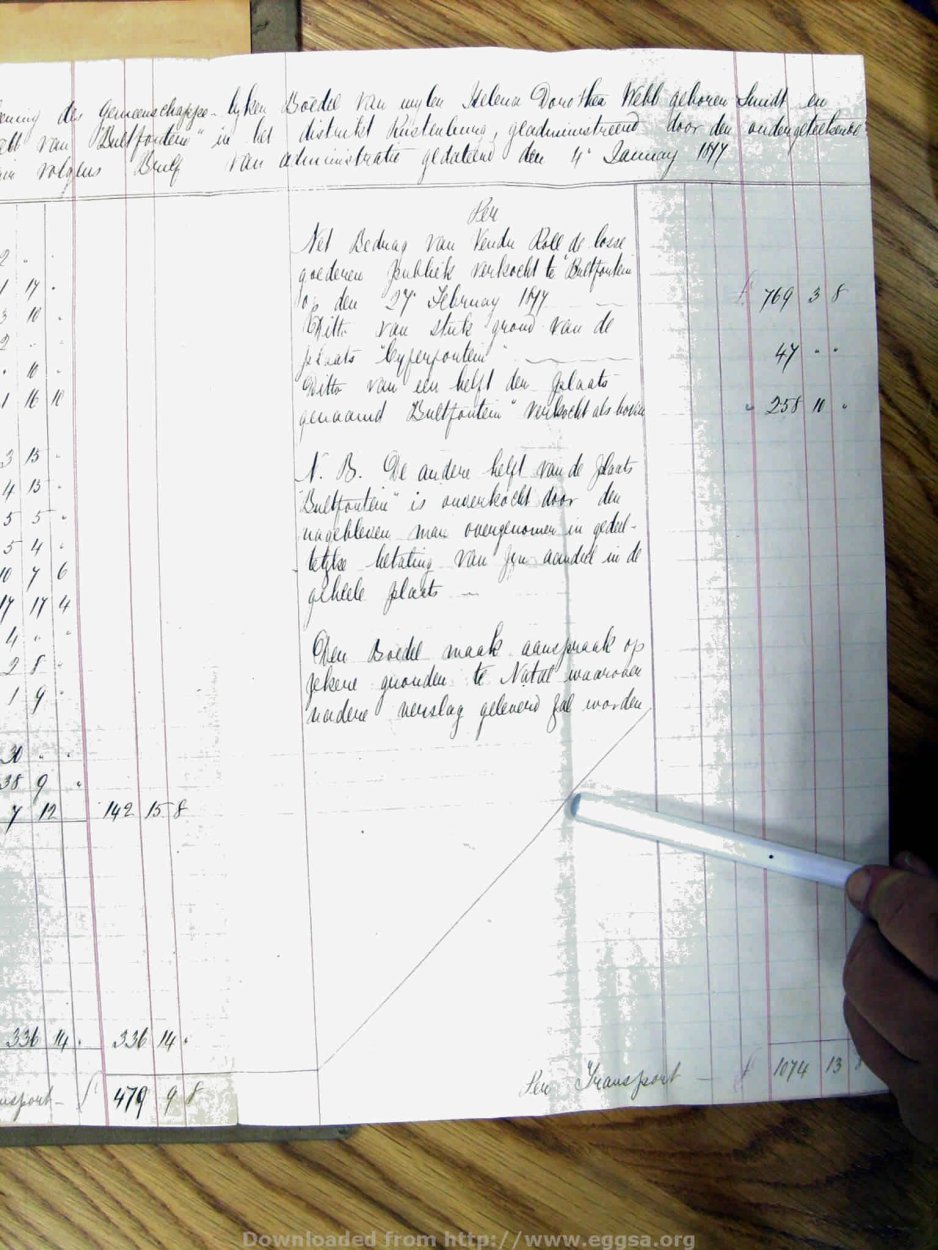 ening des Gemeenschappe- lyken Boedel van wylen Helena Dorothea Webb geboren Smidt en
van "Bultfontein" in het distrikt Rustenburg, geadministreerd door den ondergeteekende
volgens Brief van administratie gedateerd den 4e January 1877
Per
Net Bedrag van Vendu Roll de losse
goederen Publiek verkocht te "Bultfontein
op den 27e February 1877 £ 769 3 8
Ditto van stuk grond van de
plaats "Cyferfontein" 47 " "
Ditto van een helft den plaats
genaamd Bultfontein" verkocht als boven " 258 10 "
N. B. De andere helft van de plaats
"Bultfontein" is onverkocht door den
nagebleven man overgenomen in gedeel-
telyke betaling van zyn aandeel in de
geheele plaats
Den Boedel maak aanspraak op
zekere gronden te Natal waarover
nadere verslag geleverd zal worden
2 " "
1 17 "
3 10 "
2 " "
" 10 "
1 16 10
3 15 "
4 15 "
5 5 "
5 4 "
10 7 6
17 17 4
4 " "
2 8 "
1 9 "
30 " "
38 9 "
7 12 142 15 8
336 14 " 336 14 "
nsport £ 479 9 8
Per Transport £ 1074 13 8
Downloaded from http://www.eggsa.org